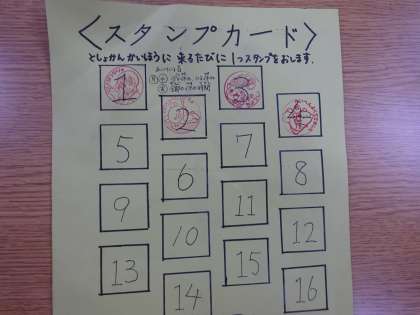 〈スタンプカード〉
としょかんかいほうに来るたびに1つスタンプをおします.
1
2
3
4
5
6
7
8
9
10
11
12
13
14
15
16